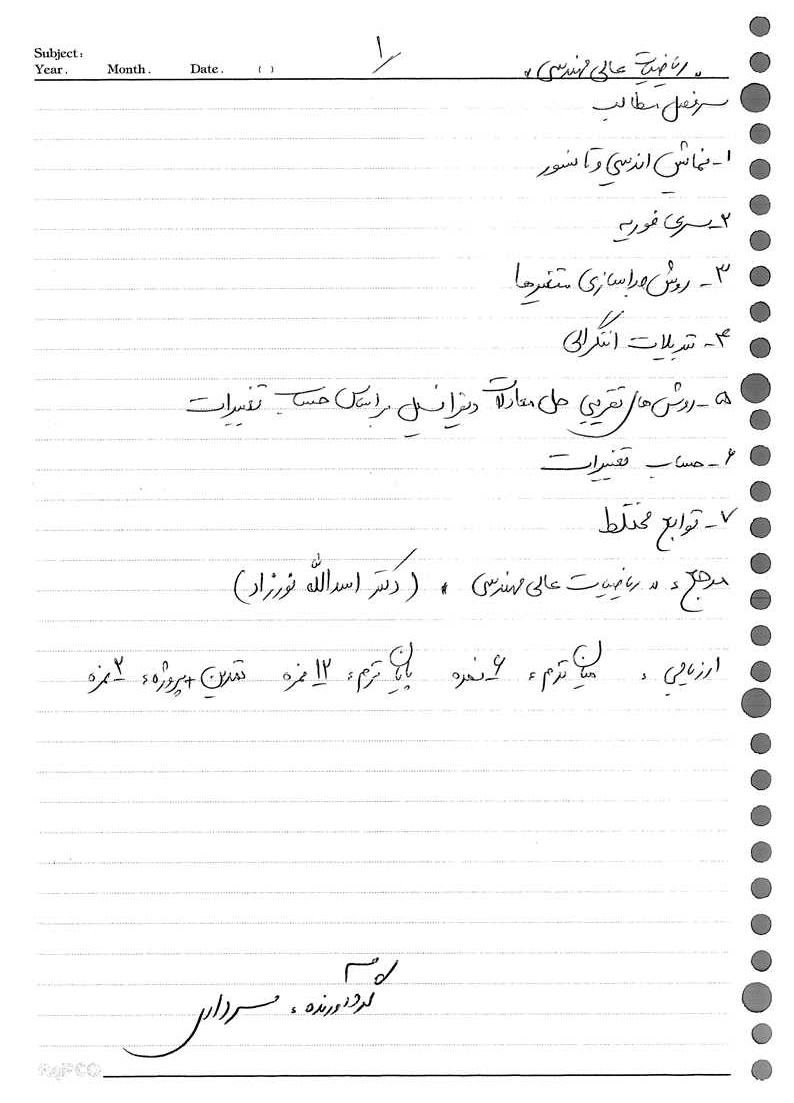 Subject:
Year. Month. Date. ( )
۱
" ریاضیات عالی مهندسی "
سرفصل مطالب
۱- نمایش اندسی و تانسور
۲- سری فوریه
۳- روش جداسازی متغیرها
۴- تبدیلات انتگرالی
۵- روش های تقریبی حل معادلات دیفرانسیل براساس حساب تغییرات
۶- حساب تغییرات
۷- توابع مختلط
مرجع: " ریاضیات عالی مهندسی " (دکتر اسدالله نورزاد)
ارزیابی: میان ترم: ۶ نمره پایان ترم: ۱۲ نمره تمرین + پروژه: ۲ نمره
گردآورنده:
PAPCO